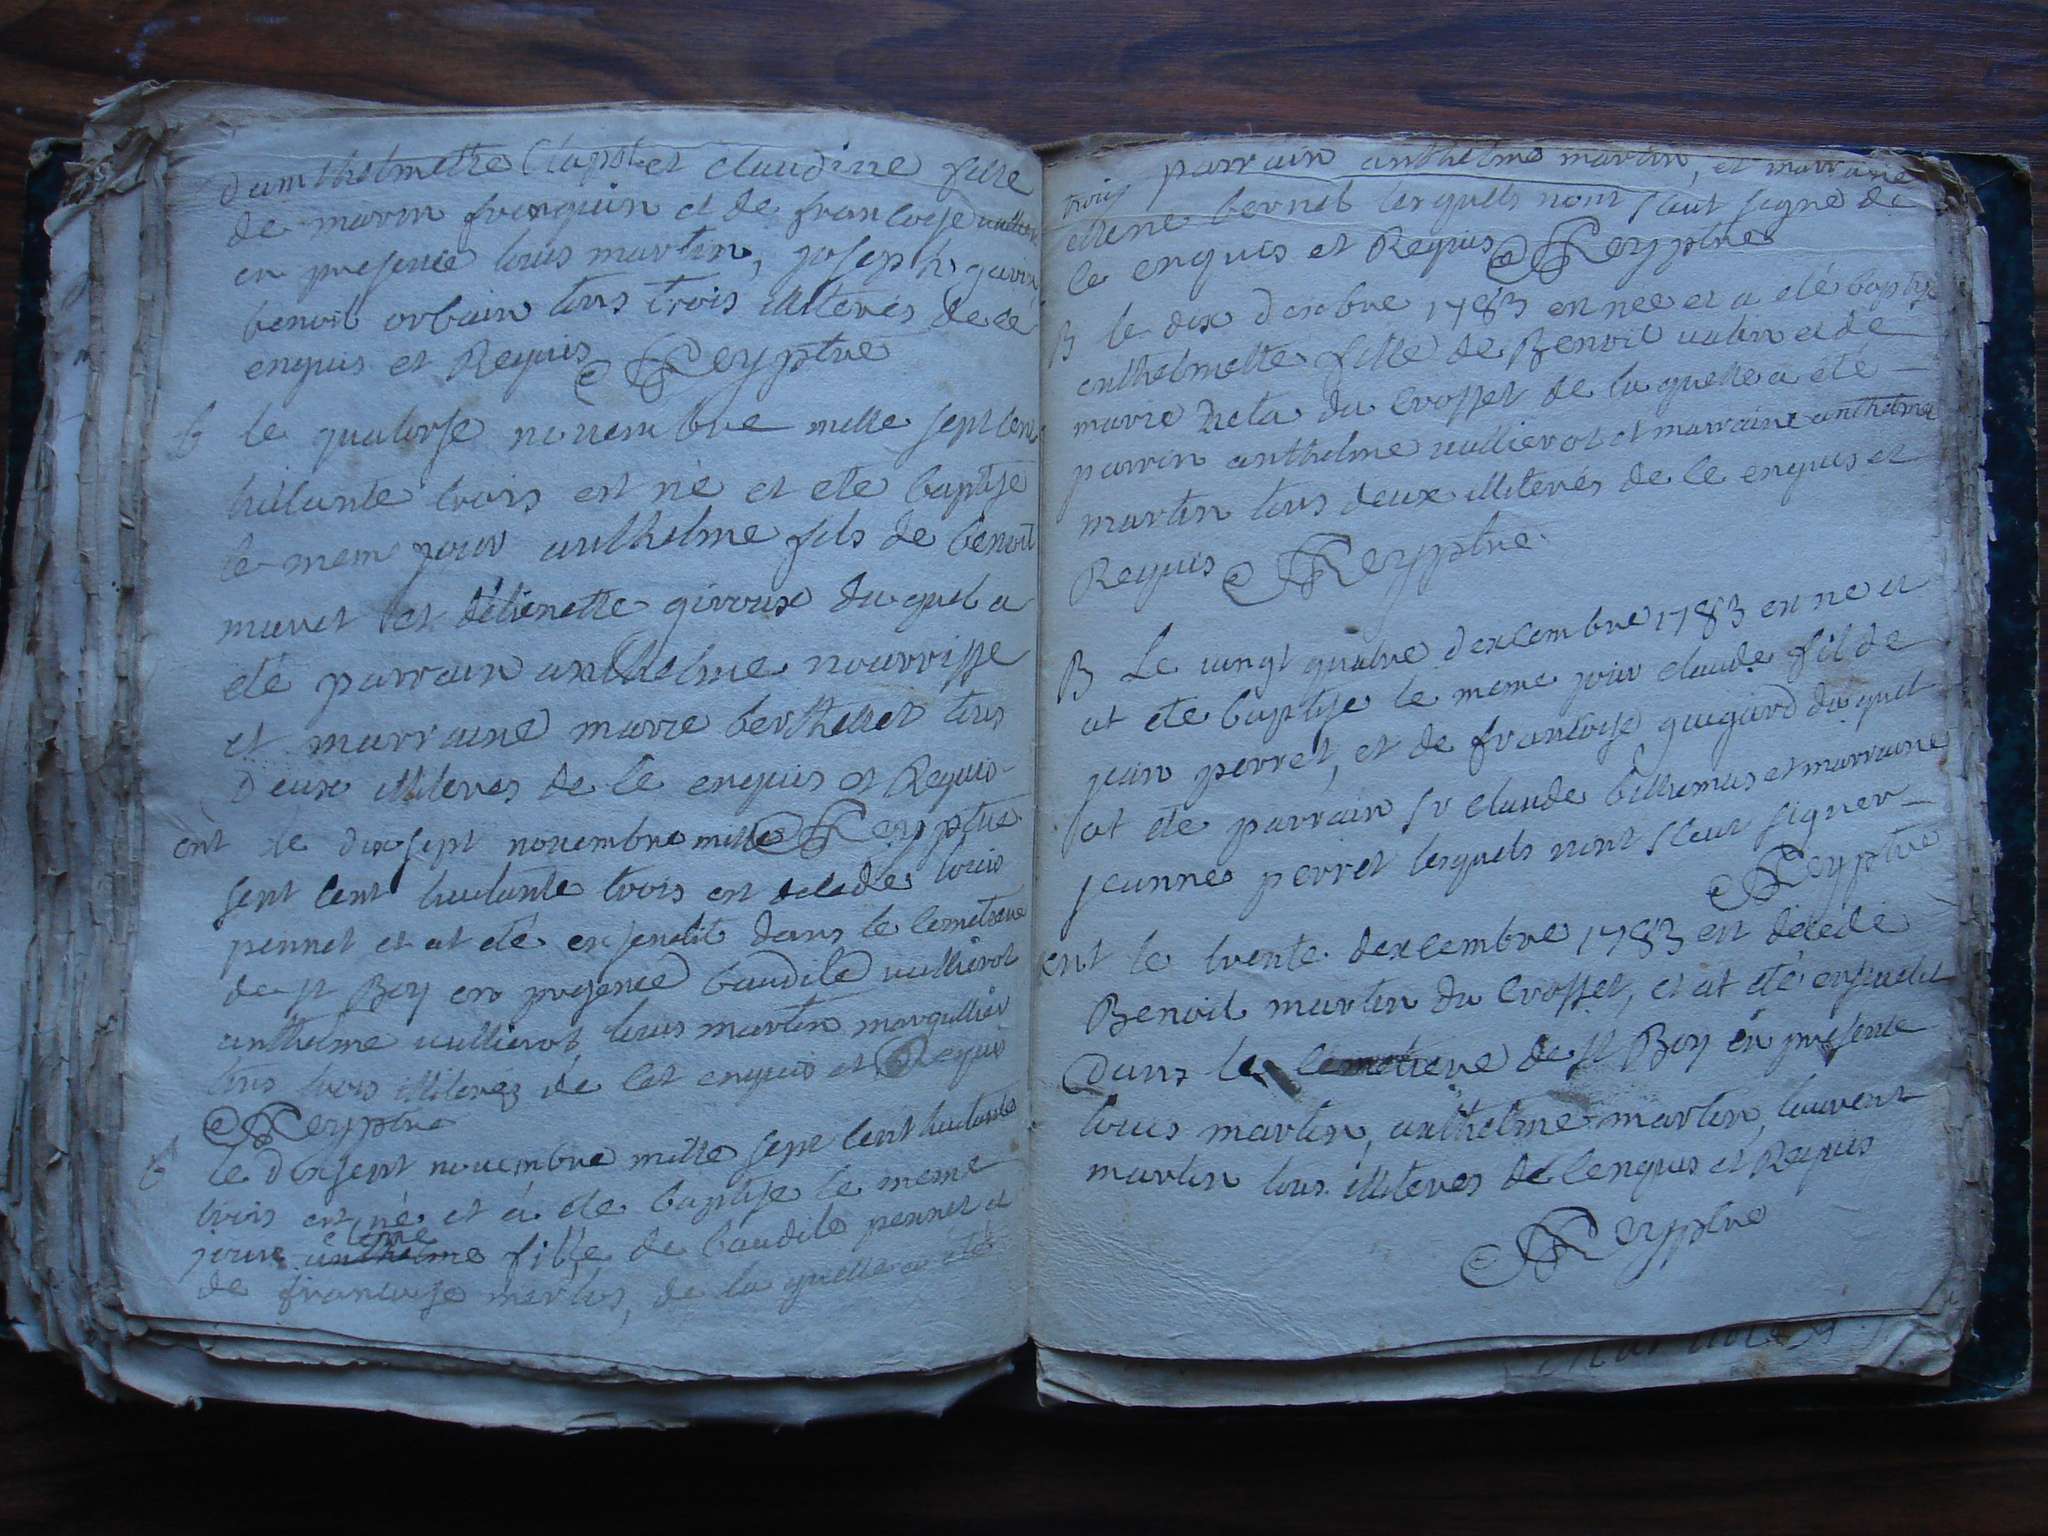 danthelmette Clapot et claudine fille
de marin franquin et de francoise
en presence louis martin, joseph
benoit orbain tous trois illiterés de ce
enquis et Requis Rey ptre
b le quatorse novembre mille sept cent
huitante trois est né et ete baptise
le mem jour anthelme fils de benoit
muret et détienette giroux du quel a
eté parrain anthelme nourrisse
et marraine marie berthelet tous
deux illiteres de ce enquis et Requis
ent le dix sept novembre mille Rey ptre
sept cent huitante trois est décédé louis
pennet et at eté ensevelit dans le cemetiere
de st Boy en presence baudile vullierot
anthelme vullierot, louis martin margullier
tous trois illiterez de cet enquis et Requis
Rey ptre
bt le dixsept novembre mille sept cent huitante
trois est né et á eté baptise le meme
jour anthelme fille de baudile pennet et
de francoise merlos, de la quelle a été
trois parrain anthelme martin, et marraine
bernet lesquels nont scut signe de
ce enquis et Requis Rey ptre
B le dix dexbre 1783 est née et a eté baptise
enthelmette fille de Benoit vulin et de
marie du Crosset de la quelle a été
parrin anthelme vullierot et marraine anthelme
martin tous deux illiterés de ce enquis et
Requis Rey ptre
B Le vingt quatre dexcembre 1783 est ne et
at ete baptise le meme jour claude fil de
jean perret, et de francoise guigard du quel
at ete parrain sr claude billiemas et marraine
jeanne perret lesquels nont sceut signer
Rey ptre
ent le trente dexcembre 1783 est décédé
Benoit martin du Crosset, et at eté ensevelit
dans le cemetiere de st Boy en presence
louis martin, anthelme martin, laurent
martin tous illiteres de cenquis et Requis
Rey ptre